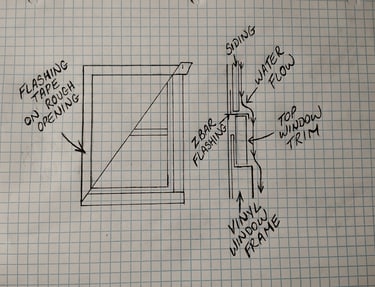 FLASHING
TAPE
ON ROUGH
OPENING
SIDING
WATER
FLOW
ZBAR
FLASHING
TOP
WINDOW
TRIM
VINYL
WINDOW
FRAME